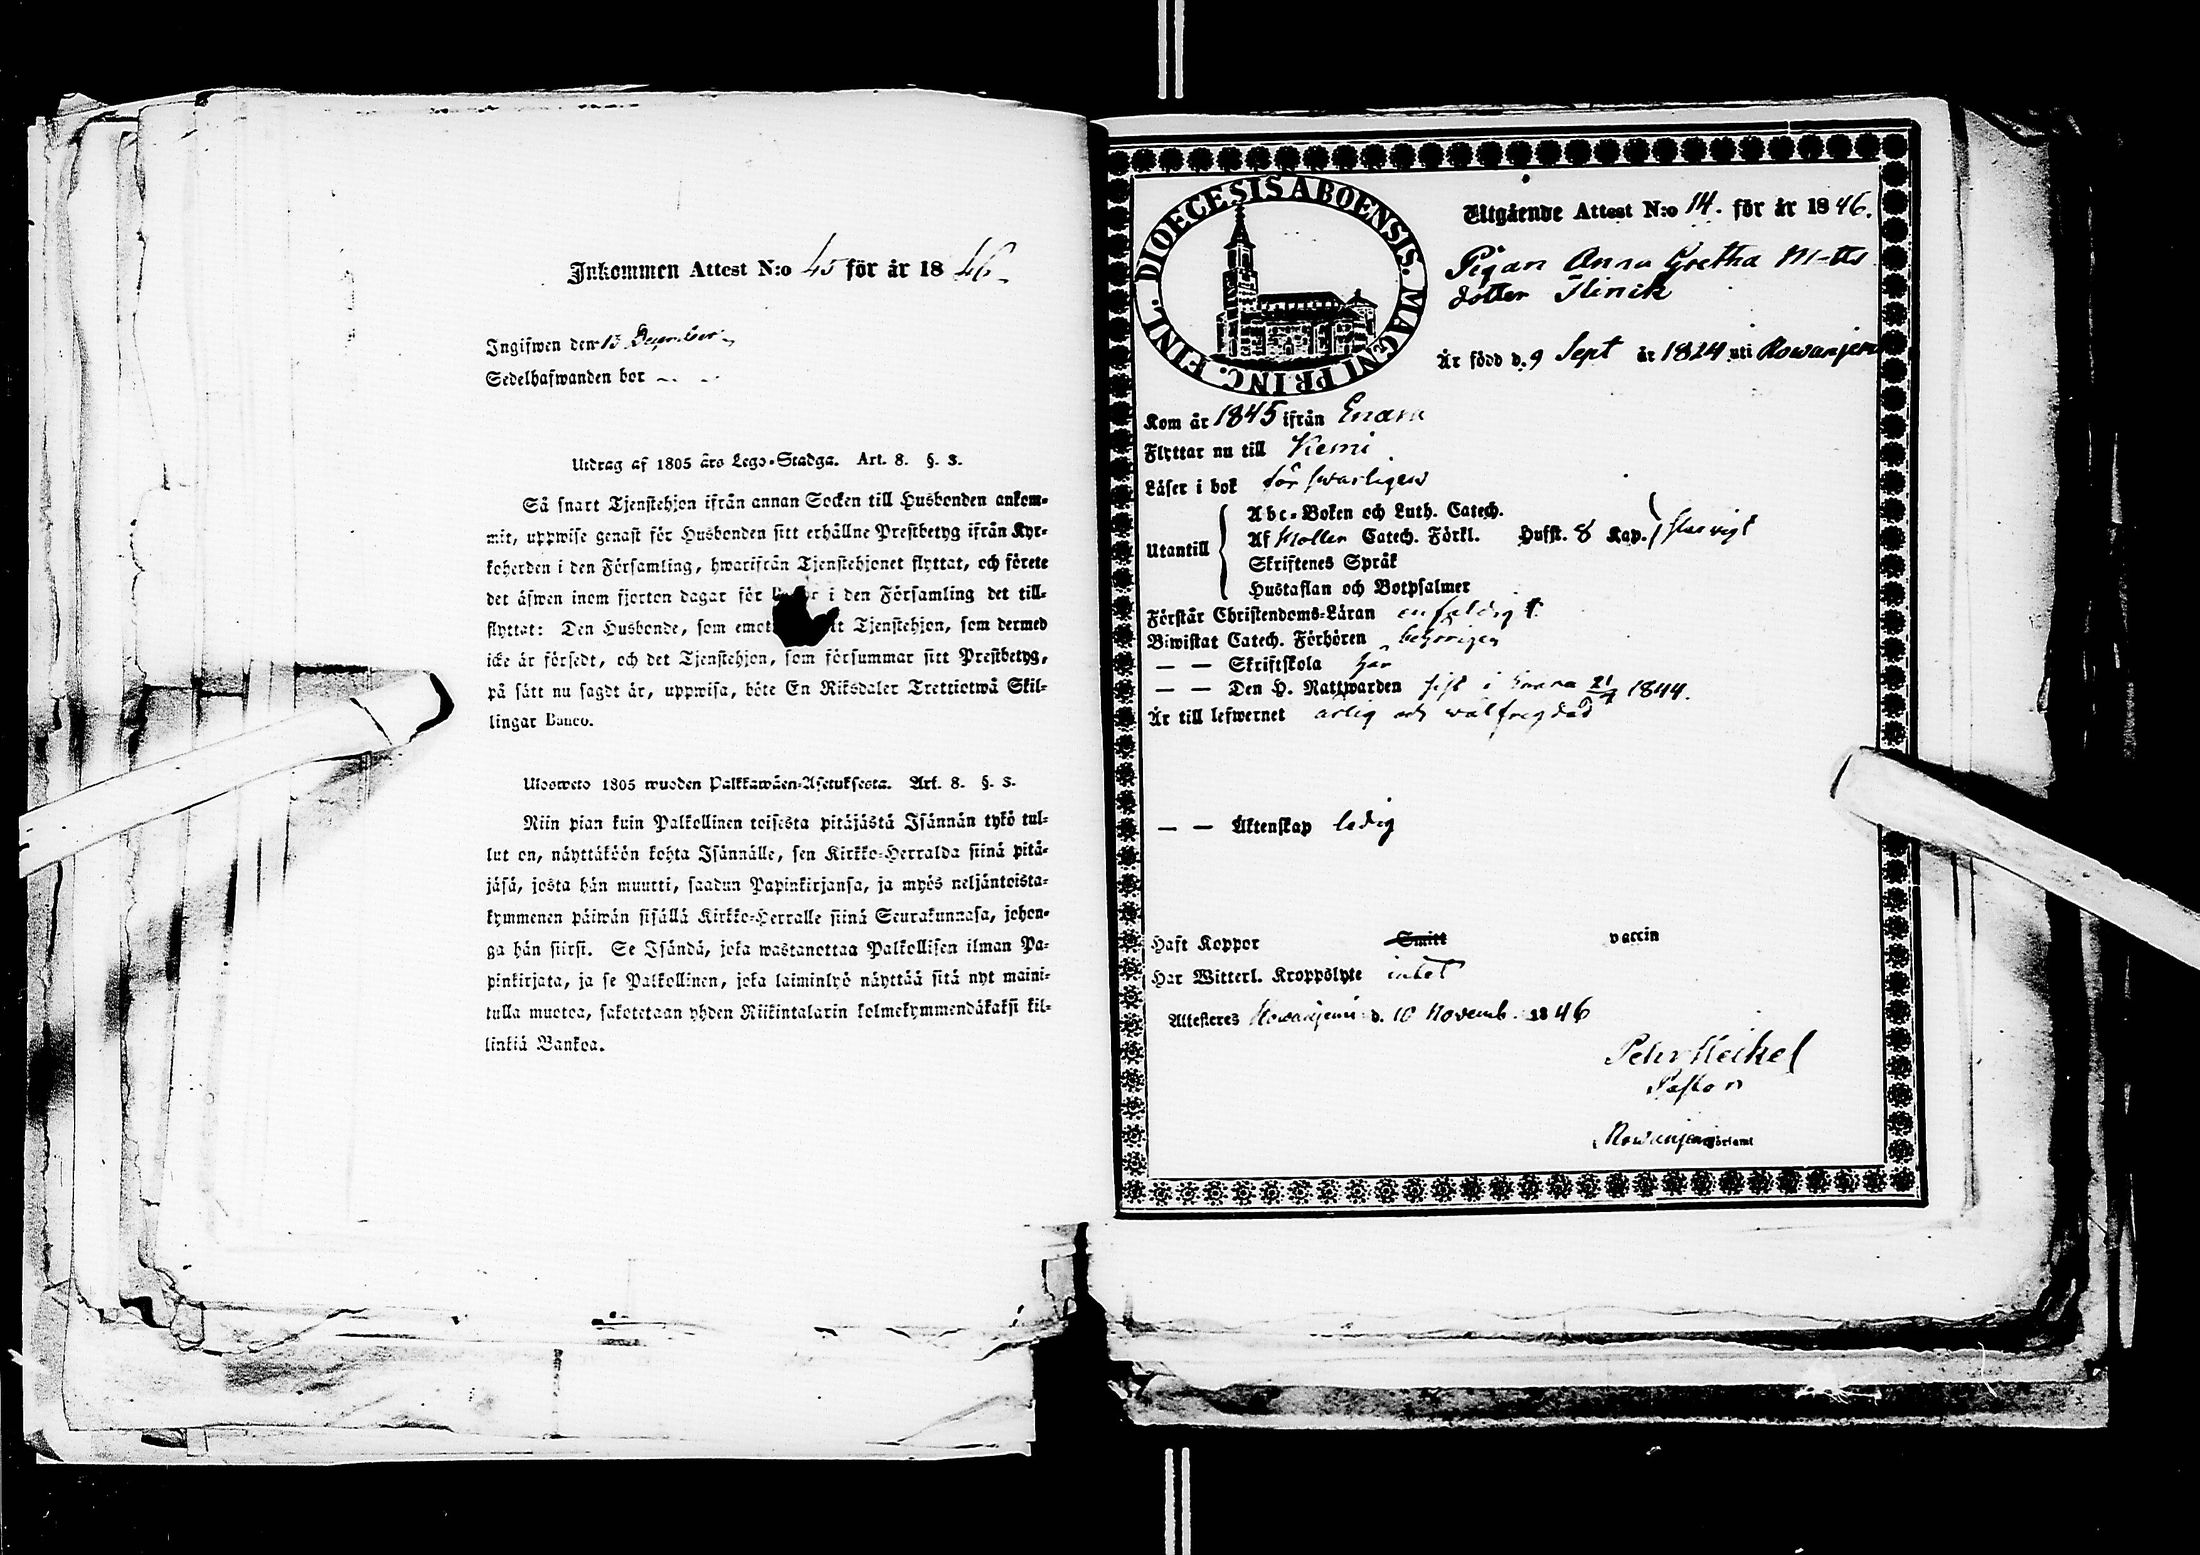 Inkommen Attest N:o 45 för år 1846.
Ingifwen den 13 December
Sedelhafwanden bor
Utdrag af 1805 års Lego-Stadga. Art. 8. §. 3.
Så snart Tjenstehjon ifrån annan Socken till Husbonden ankom-
mit, uppwise genast för Husbonden sitt erhållne Prestbetyg ifrån Kyr-
koherden i den Församling, hwarifrån Tjenstehjonet flyttat, och förete
det äfwen inom fjorton dagar för i den Församling det till-
flyttat: Den Husbonde, som Tjenstehjon, som dermed
icke är försedt, och det Tjenstehjon, som försummar sitt Prestbetyg,
på sätt nu sagdt är, uppwisa, böte En Riksdaler Trettiotwå Skil-
lingar Banco.
Ulosweto 1805 wuoden Palkkawäen-Asetuksesta. Art. 8. §. 3.
Niin pian kuin Palkollinen toisesta pitäjästä Isännän tykö tul-
lut on, näyttäköön kohta Isännälle, sen Kirkko-Herralda siinä pitä-
jäsä, josta hän muutti, saadun Papinkirjansa, ja myös neljäntoista-
kymmenen päiwän sisällä Kirkko-Herralle siinä Seurakunnasa, johon-
ga hän siirsi. Se Isändä, joka wastanottaa Palkollisen ilman Pa-
pinkirjata, ja se Palkollinen, joka laiminlyö näyttää sitä nyt maini-
tulla muotoa, sakotetaan yhden Riikintalarin kolmekymmendäkaksi kil-
linkiä Bankoa.
DIOECESIS ABOENSIS. MAGNI PRINC. FINL.
Utgående Attest N:o 14. för år 1846.
Pigan Anna Gretha M-tts
dotter
Är född d. 9 Sept år 1824 uti Rowanjemi
Kom år 1845 ifrån Enare
Flyttar nu till Kemi
Läser i bok förswarligen
Utantill
Abc-Boken och Luth. Catech.
Af Möller Catech. Förkl. Hufst. 8 Kap.
Skriftenes Språk
Hustaflan och Botpsalmer
Förstår Christendoms-Läran enfaldigt
Biwistat Catech. Förhören behörigen
— — Skriftskola här
— — Den H. Nattwarden sist i Enare 21/7 1844.
Är till lefwernet ärlig och wälfregdad
— — Äktenskap ledig
Haft Koppor Smitt vaccin
Har Witterl. Kroppslyte intet
Attesteres Rowanjemi d. 10 Novemb. 1846
Pehr Heikel
Pastor
Rowanjemi